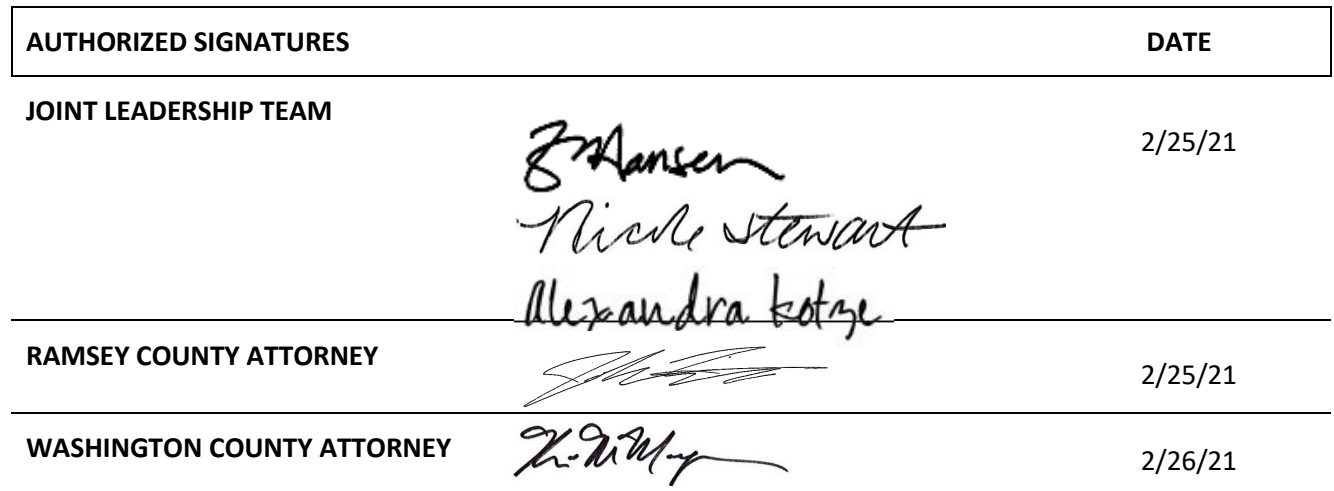 AUTHORIZED SIGNATURES DATE
JOINT LEADERSHIP TEAM
2/25/21
Hansen
Nicole Stewart
Alexandra Kotze
RAMSEY COUNTY ATTORNEY
2/25/21
WASHINGTON COUNTY ATTORNEY
2/26/21